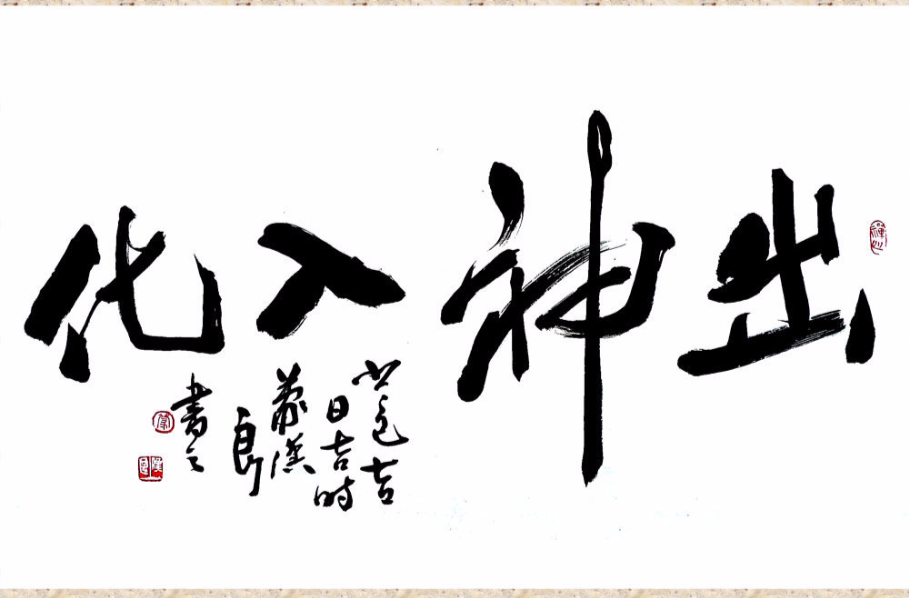 出神入化
吉
日吉时
蒙汉
良
书之